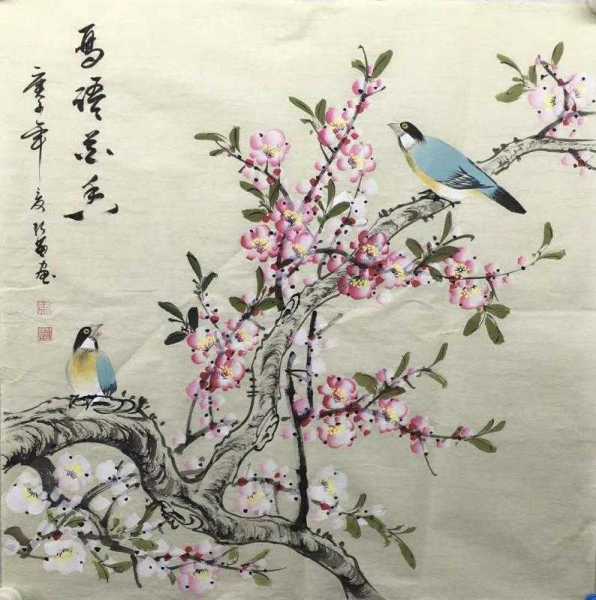 鳥語花香
庚子年夏画